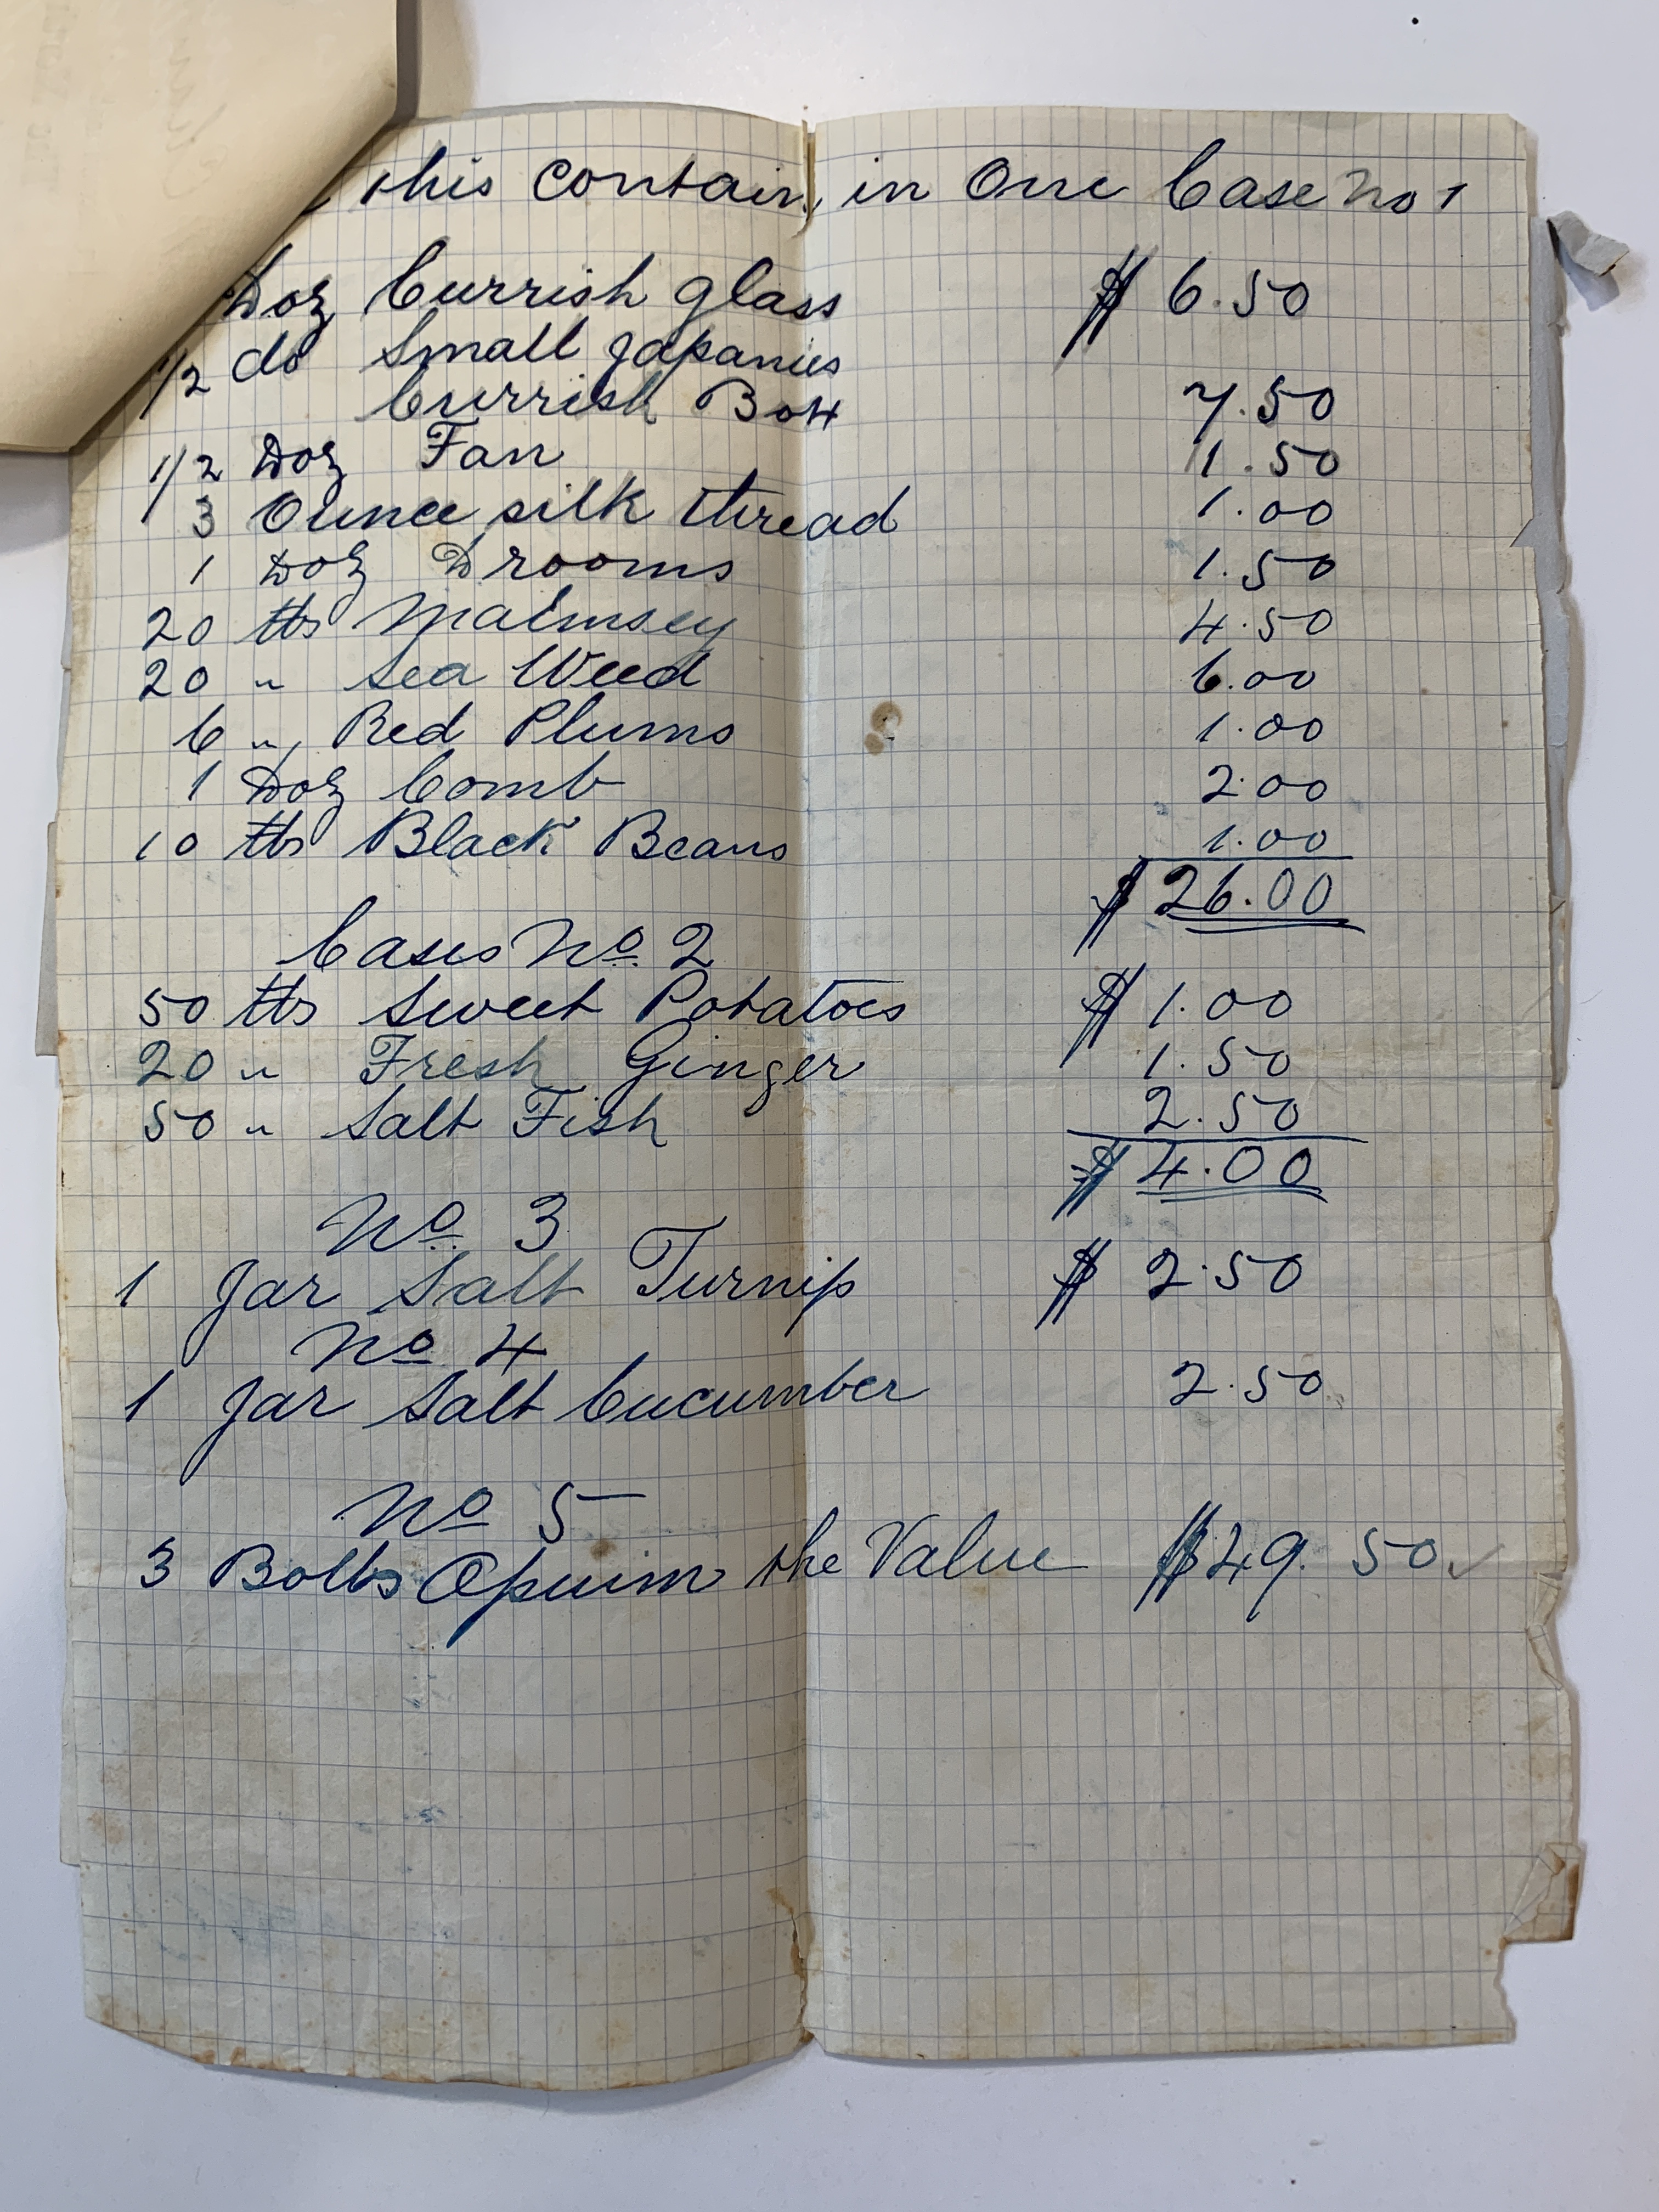 this contain, in One Case No 1
Doz Currish glass $ 6.50
1/2 do Small Japanies
Currish Box 7.50
1/2 Doz Fan 1.50
3 Ounce silk thread 1.00
1 Doz Drooms 1.50
20 lbs Malmsey 4.50
20 " Sea Weed 6.00
6 " Red Plums 1.00
1 Doz Comb 2.00
10 lbs Black Beans 1.00
$ 26.00
Cases No. 2
50 lbs Sweet Potatoes $ 1.00
20 " Fresh Ginger 1.50
50 " Salt Fish 2.50
$ 4.00
No 3
1 Jar Salt Turnip $ 2.50
No 4
1 Jar Salt Cucumber 2.50
No 5
3 Bolbs Opuim the Value $49.50